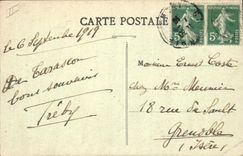 CARTE POSTALE
le 6 Septembre 1919
De Tarascon
bons souvenirs
Tréby
Monsieur Ernest Coste
chez Mme Meunier
18 rue de Sault
Grenoble
(Isère)
5c
5c